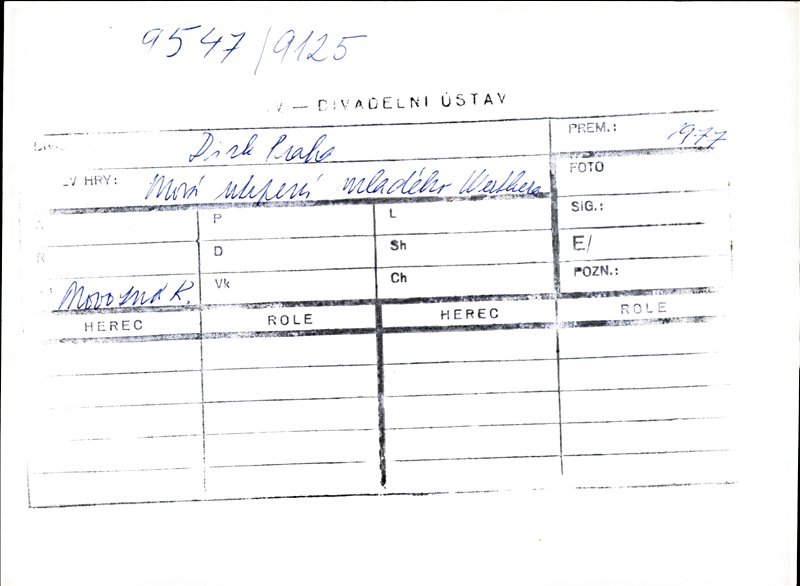 9547/9125
V — DIVADELNÍ ÚSTAV
DIV
Disk Praha
PREM.: 1977
V HRY: Nová utrpení mladého Werthera
FOTO
P
L
SIG.:
R
D
Sh
E/
Novotná K.
Vk
Ch
POZN.:
HEREC ROLE HEREC ROLE